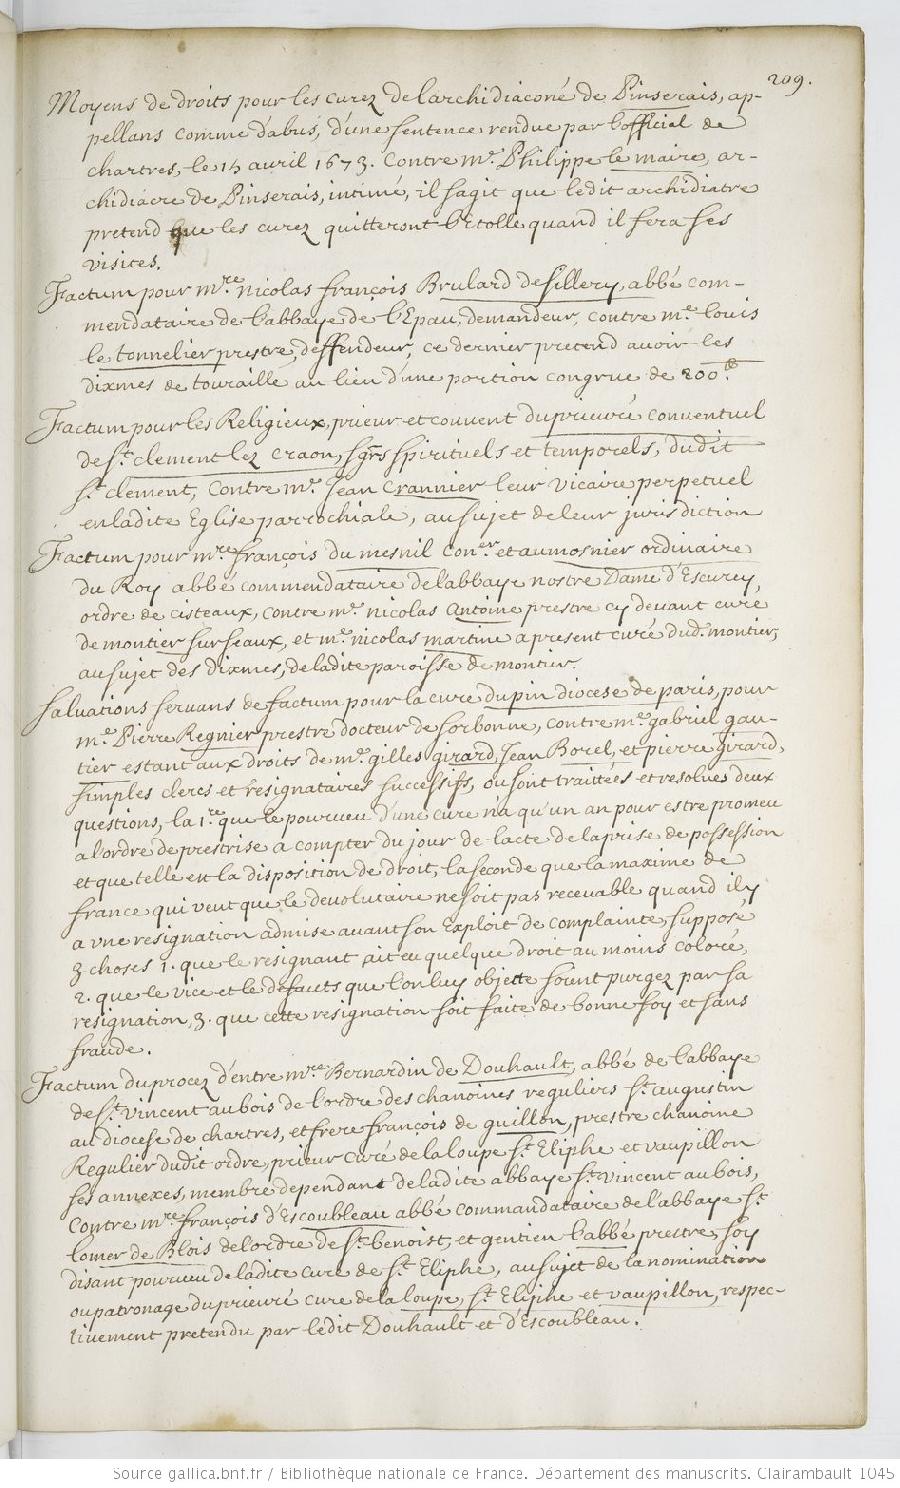 209.
Moyens de droits pour les curez de larchidiaconé de Pinserais, ap-
pellans comme dabus, d'une sentence rendue par lofficial de
chartres, le 15 avril 1673. Contre mr. Philippe le maire, ar-
chidiacre de Pinserais, intimé, il sagit que ledit archidiatre
pretend que les curez quitteront l'Etolle quand il fera ses
visites.
Factum pour mre. nicolas françois Brulard de Sillery, abbé com-
mendataire de l'abbaye de l'Epau, demandeur, contre me. louis
le tonnelier prestre, deffendeur, ce dernier pretend avoir les
dixmes de touraille au lieu d'une portion congrue de 200lt.
Factum pour les Religieux, prieur et couvent du prieuré conventuel
de St. clement lez craon, sgrs spirituels et temporels, dudit
St. clement, contre mr. Jean Crannier leur vicaire perpetuel
en ladite Eglise parrochiale, au sujet de leur jurisdiction
Factum pour mre françois du mesnil coner. et aumosnier ordinaire
du Roy abbé commendataire de l'abbaye nostre Dame d'Escurey,
ordre de cisteaux, contre mr. nicolas Antoine prestre cy devant curé
de montier sur seaux, et me. nicolas martine a present curé dud. montier,
au sujet des dixmes, de ladite paroisse de montier.
Salvations servans de factum pour la cure du pin diocese de paris, pour
me. Pierre Regnier prestre docteur de sorbonne, contre me. gabriel gau-
tier estant aux droits de me. gilles girard, Jean Borel, et pierre girard,
simples clercs et resignataires successifs, ou sont traittées et resolues deux
questions, la 1.re que le pourveu d'une cure n'a qu'un an pour estre promeu
a l'ordre de prestrise a compter du jour de lacte de la prise de possession
et que telle est la disposition de droit, la seconde que la maxime de
france qui veut que le devolutaire ne soit pas recevable quand il y
a une resignation admise avant son Exploit de complainte, suppose
3 choses 1. que le resignant ait eu quelque droit au moins coloré,
2. que le vice et le defauts que l'on luy objette soient purgez par sa
resignation, 3. que cette resignation soit faite de bonne foy et sans
fraude.
Factum du procez d'entre mre Bernardin de Douhault, abbé de l'abbaye
de St. vincent au bois de l'ordre des chanoines reguliers St. augustin
au diocese de chartres, et frere françois de guillon, prestre chanoine
Regulier dudit ordre, prieur curé de la loupe St. Eliphe et vaupillon
ses annexes, membre dependant de ladite abbaye St. vincent au bois,
Contre mre. françois d'Escoubleau abbé commandataire de l'abbaye St.
lomer de Blois de lordre de St. benoist, et gentien labbé prestre, soy
disant pourveu de ladite cure de St. Eliphe, au sujet de la nomination
ou patronage du prieuré cure de la loupe, St. Eliphe et vaupillon, respec-
tivement pretendu par ledit Douhault et d'Escoubleau.
Source gallica.bnf.fr / Bibliothèque nationale de France. Département des manuscrits. Clairambault 1045